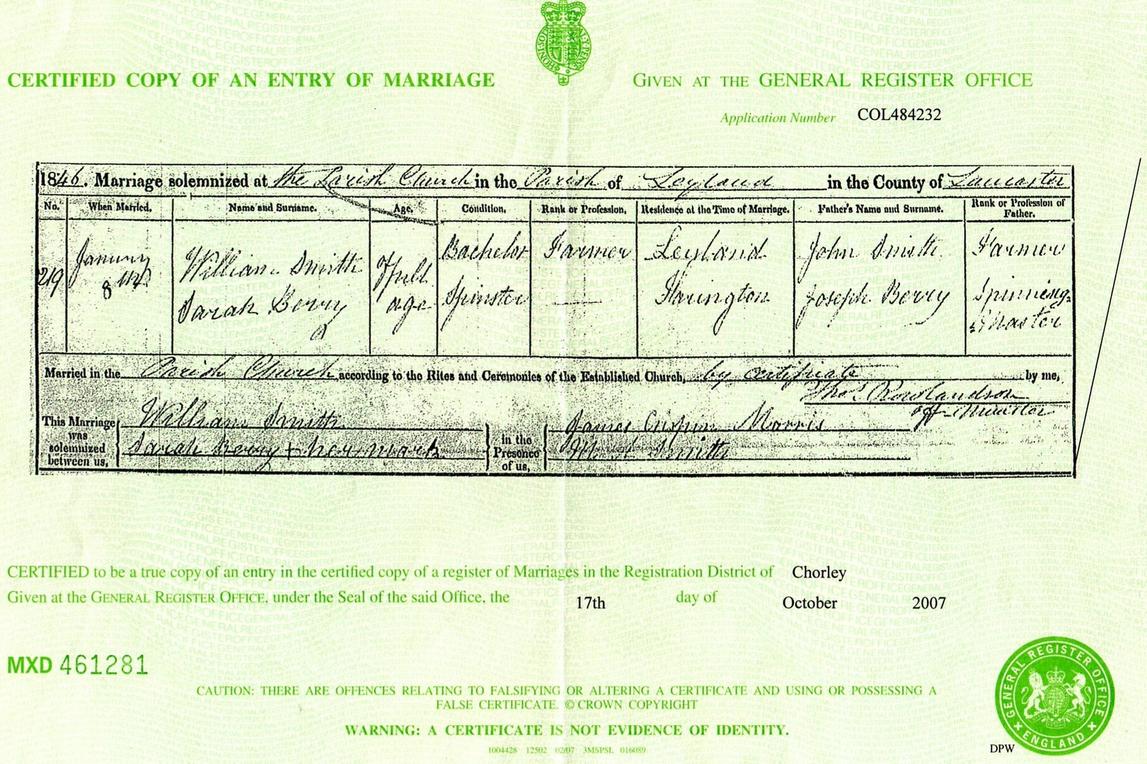 CERTIFIED COPY OF AN ENTRY OF MARRIAGE
GIVEN AT THE GENERAL REGISTER OFFICE
Application Number COL484232
1846. Marriage solemnized at the Parish Church in the Parish of Leyland in the County of Lancaster
No. When Married. Name and Surname. Age. Condition. Rank or Profession. Residence at the Time of Marriage. Father's Name and Surname. Rank or Profession of Father.
219 January 8th William Smith of full age Bachelor Farmer Leyland John Smith Farmer
Sarah Berry Spinster Joseph Berry Spinning Master
Married in the Parish Church according to the Rites and Ceremonies of the Established Church, by certificate by me,
Thos. Rowlandson
offg. Minister
This Marriage was solemnized between us, William Smith in the Presence of us, James Morris
Sarah Berry + her mark Smith
CERTIFIED to be a true copy of an entry in the certified copy of a register of Marriages in the Registration District of Chorley
Given at the GENERAL REGISTER OFFICE, under the Seal of the said Office, the 17th day of October 2007
MXD 461281
CAUTION: THERE ARE OFFENCES RELATING TO FALSIFYING OR ALTERING A CERTIFICATE AND USING OR POSSESSING A
FALSE CERTIFICATE. © CROWN COPYRIGHT
WARNING: A CERTIFICATE IS NOT EVIDENCE OF IDENTITY.
1004428 12502 02/07 3MSPSL 016089
GENERAL REGISTER OFFICE
ENGLAND
DPW